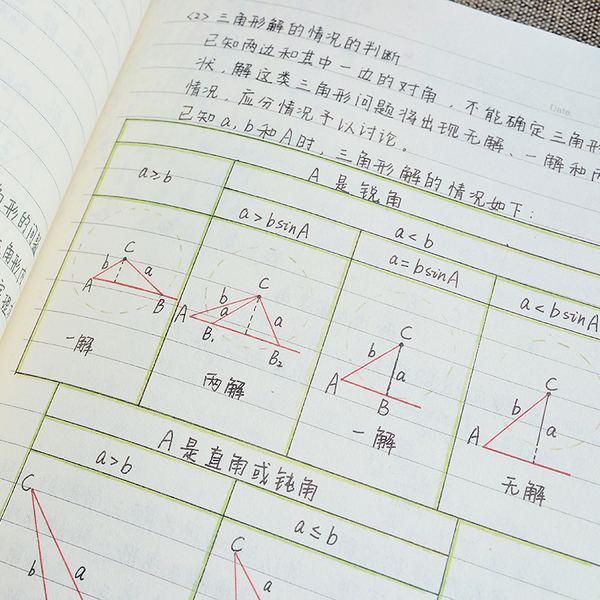 <2> 三角形解的情况的判断
已知两边和其中一边的对角，不能确定三角形
状，解这类三角形问题将出现无解、一解和两
情况，应分情况予以讨论。
已知a,b和A时，三角形解的情况如下：
Date.
A是锐角
a≥b
a<b
a>bsinA
a=bsinA
a<bsinA
C
b
a
A
B
一解
C
b
a
a
A
B₁
B₂
两解
C
b
a
A
B
一解
C
b
a
A
无解
A是直角或钝角
a>b
a≤b
C
b
a
C
b
a
形的问题
角形